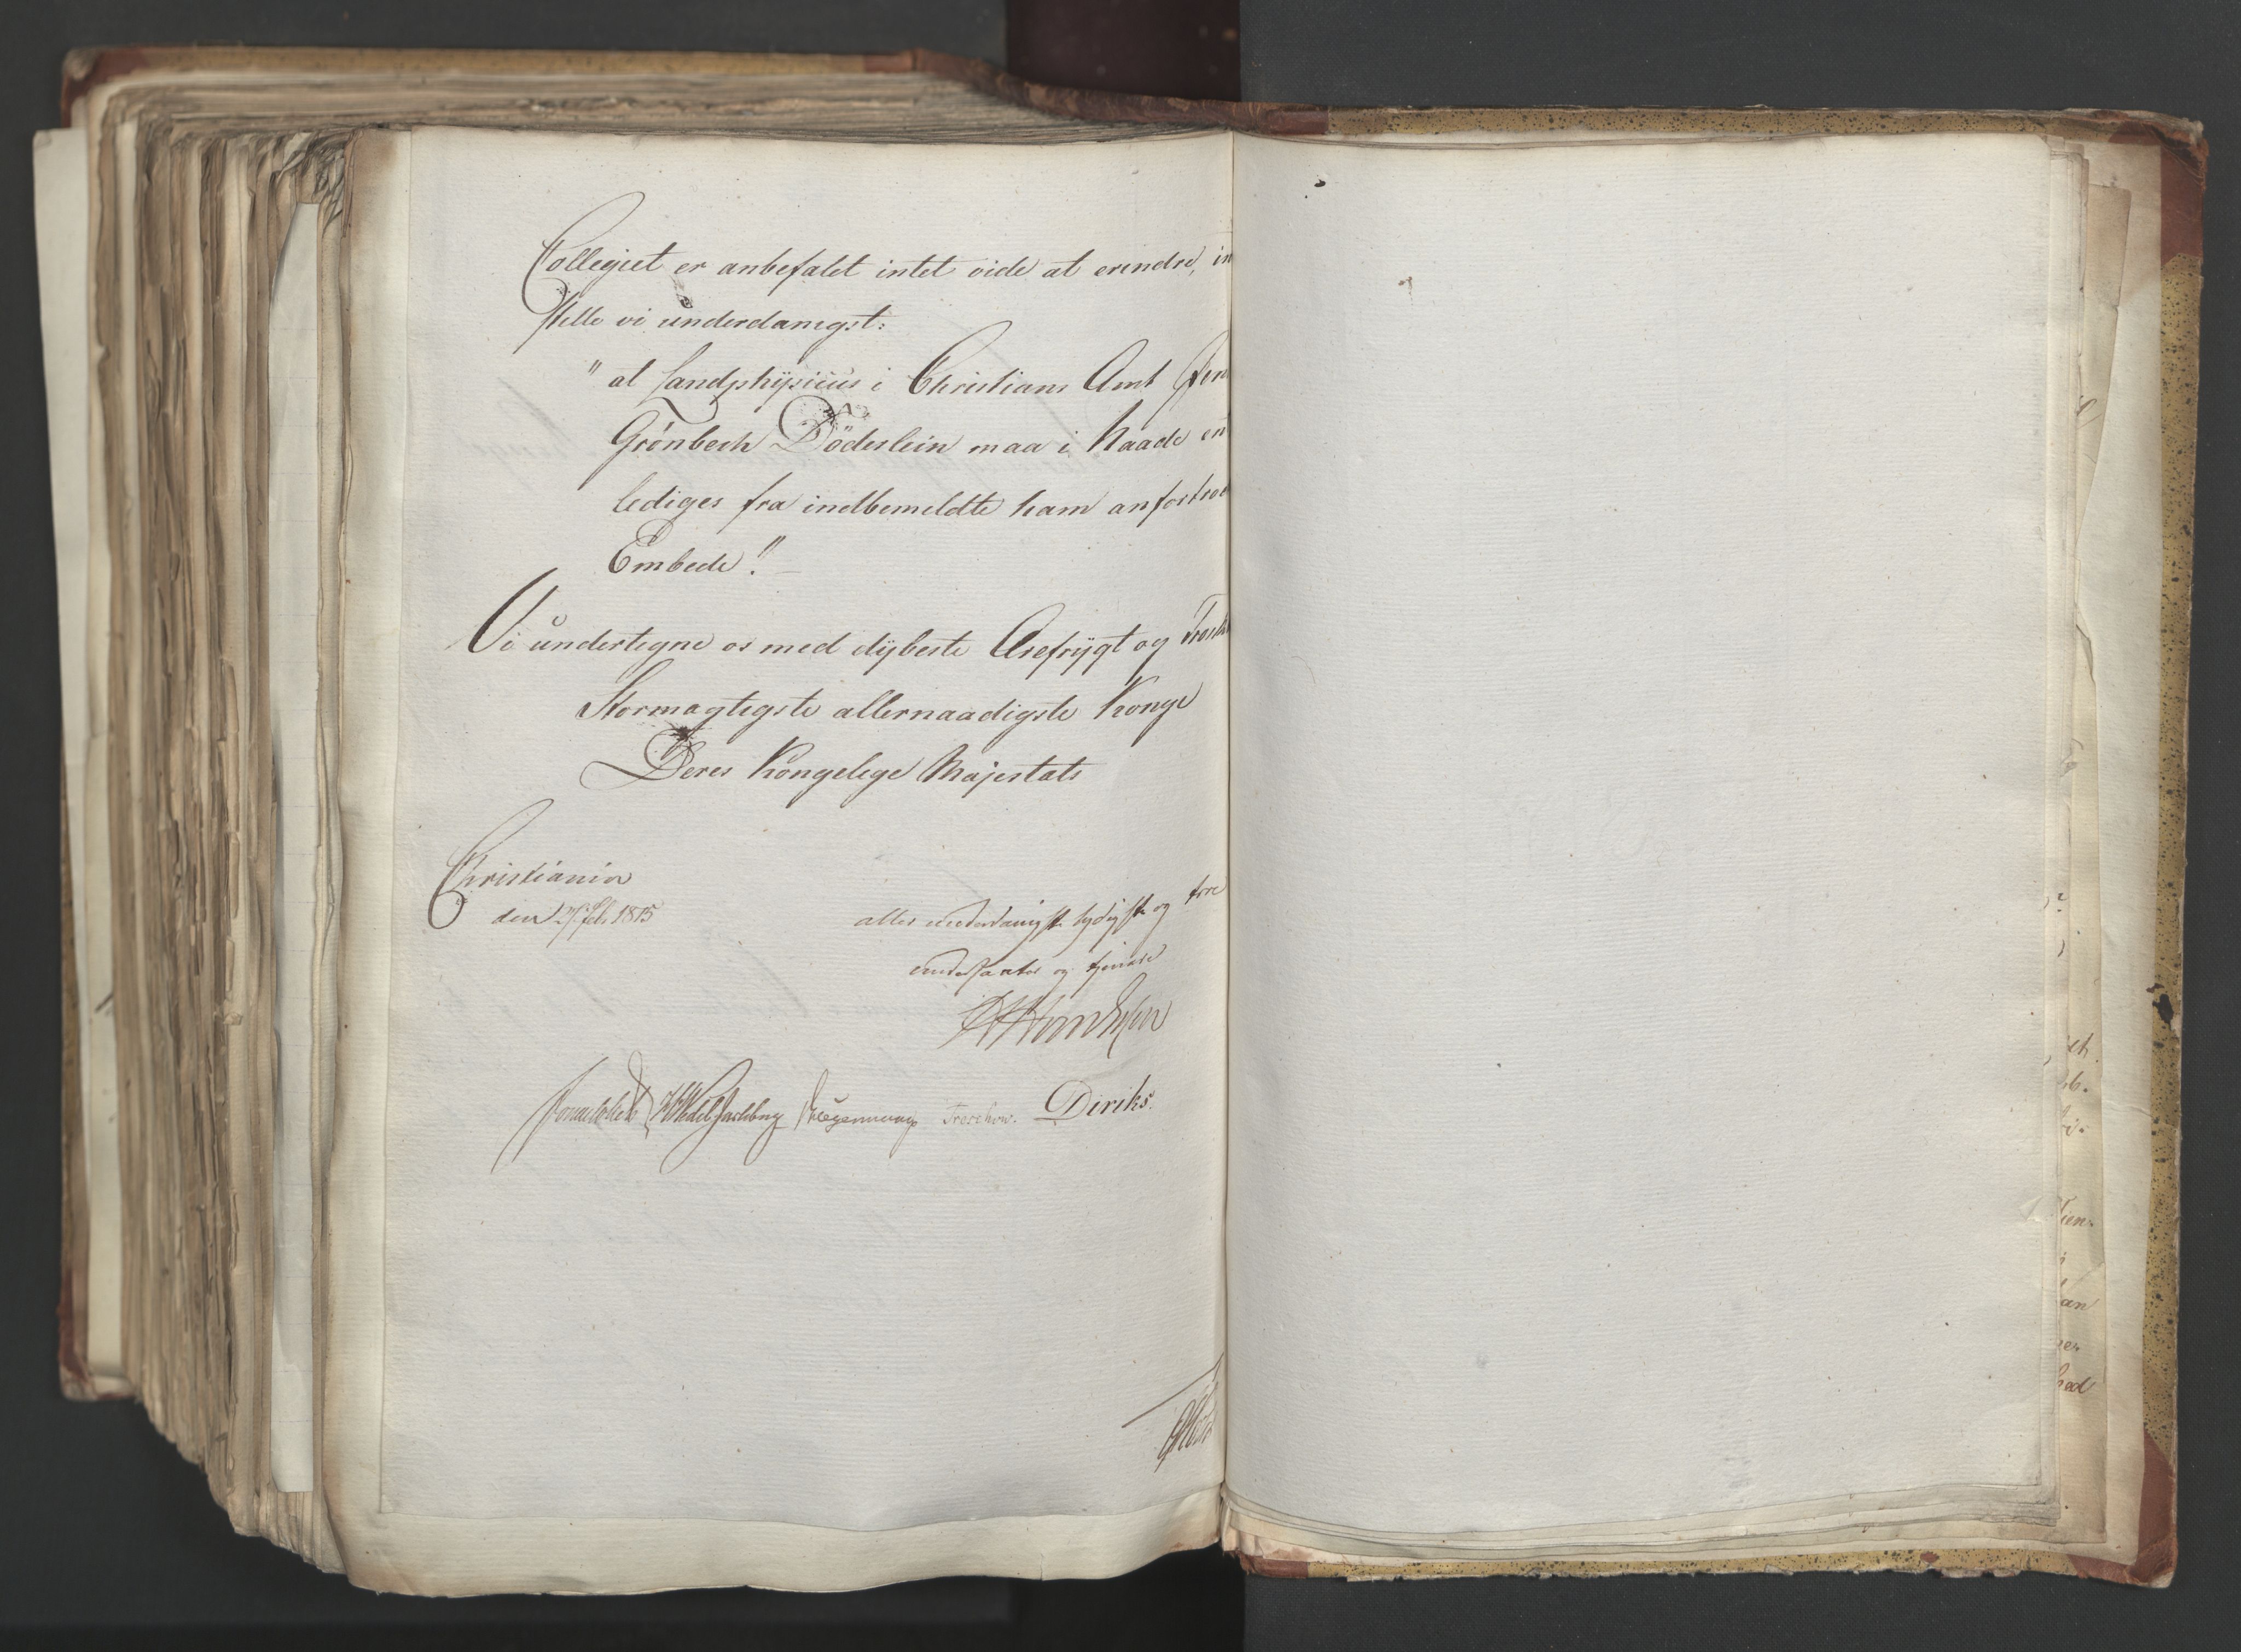 Collegiet er anbefalet intet vide at erindre, in
stille vi underdanigst:
" at Landphysicus i Christians Amt Jen
Grønbech Döderlein maa i Naade en
lediges fra indbemeldte ham anfortroe
Embede."
Vi undertegne os med dybeste Ærefrygt og Trosk
Stormægtigste allernaadigste Konge
Deres Kongelige Majestæts
Christiania
den 27 Feb. 1815
aller underdanigste lydigste og troe
undersaatter og tjenere
Sommerhielm HWedel Jarlsberg Treschow. Diriks.